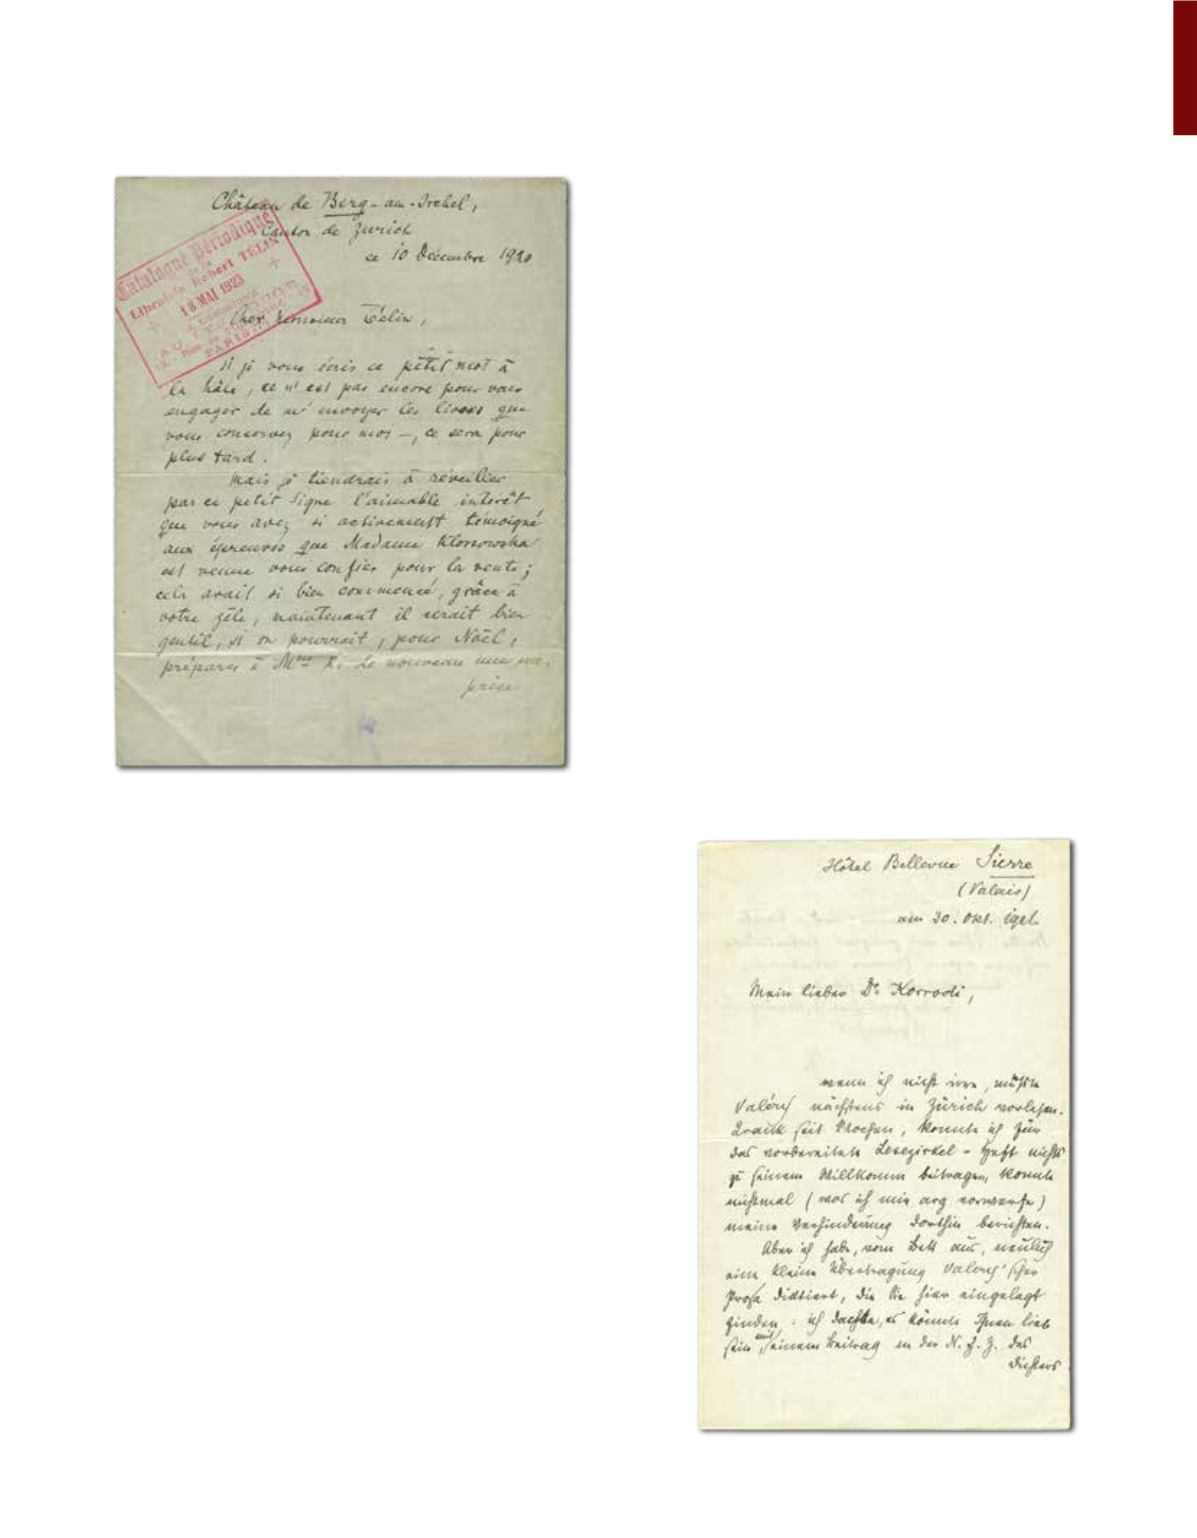 Château de Berg-am-Irchel,
Canton de Zurich
ce 10 Décembre 1920
Catalogue Périodique
de la
Librairie Robert TÉLIN
18 MAI 1923
PARIS
Cher Monsieur Télin,
Si je vous écris ce petit mot à
la hâte, ce n'est pas encore pour vous
engager de m'envoyer les livres que
vous conservez pour moi –, ce sera pour
plus tard.
Mais je tiendrais à réveiller
par ce petit signe l'aimable interêt
que vous avez si activement témoigné
aux épreuves que Madame Klossowska
est venue vous confier pour la vente;
cela avait si bien commencé, grâce à
votre zèle, maintenant il serait bien
gentil, si on pourrait, pour Noël,
préparer à Mme K. de nouveau une
Hôtel Bellevue Sierre
(Valais)
am 30. Okt.
Mein lieber Dr Korrodi,
wenn ich nicht irre, müßte
Valéry nächstens in Zürich vorlesen.
Krank seit Wochen, konnte ich für
das vorbereitete Lesezirkel-Heft nichts
zu seinem Willkomm beitragen, konnte
nichtmal (was ich mir arg vorwerfe)
meine Verhinderung dorthin berichten.
Aber ich habe, vom Bett aus, neulich
eine kleine Übertragung Valéry'scher
Prosa diktiert, die Sie hier eingelegt
finden: ich dachte, es könnte Ihnen lieb
sein, mit seinem Beitrag in der N. Z. Z. des
Dichters